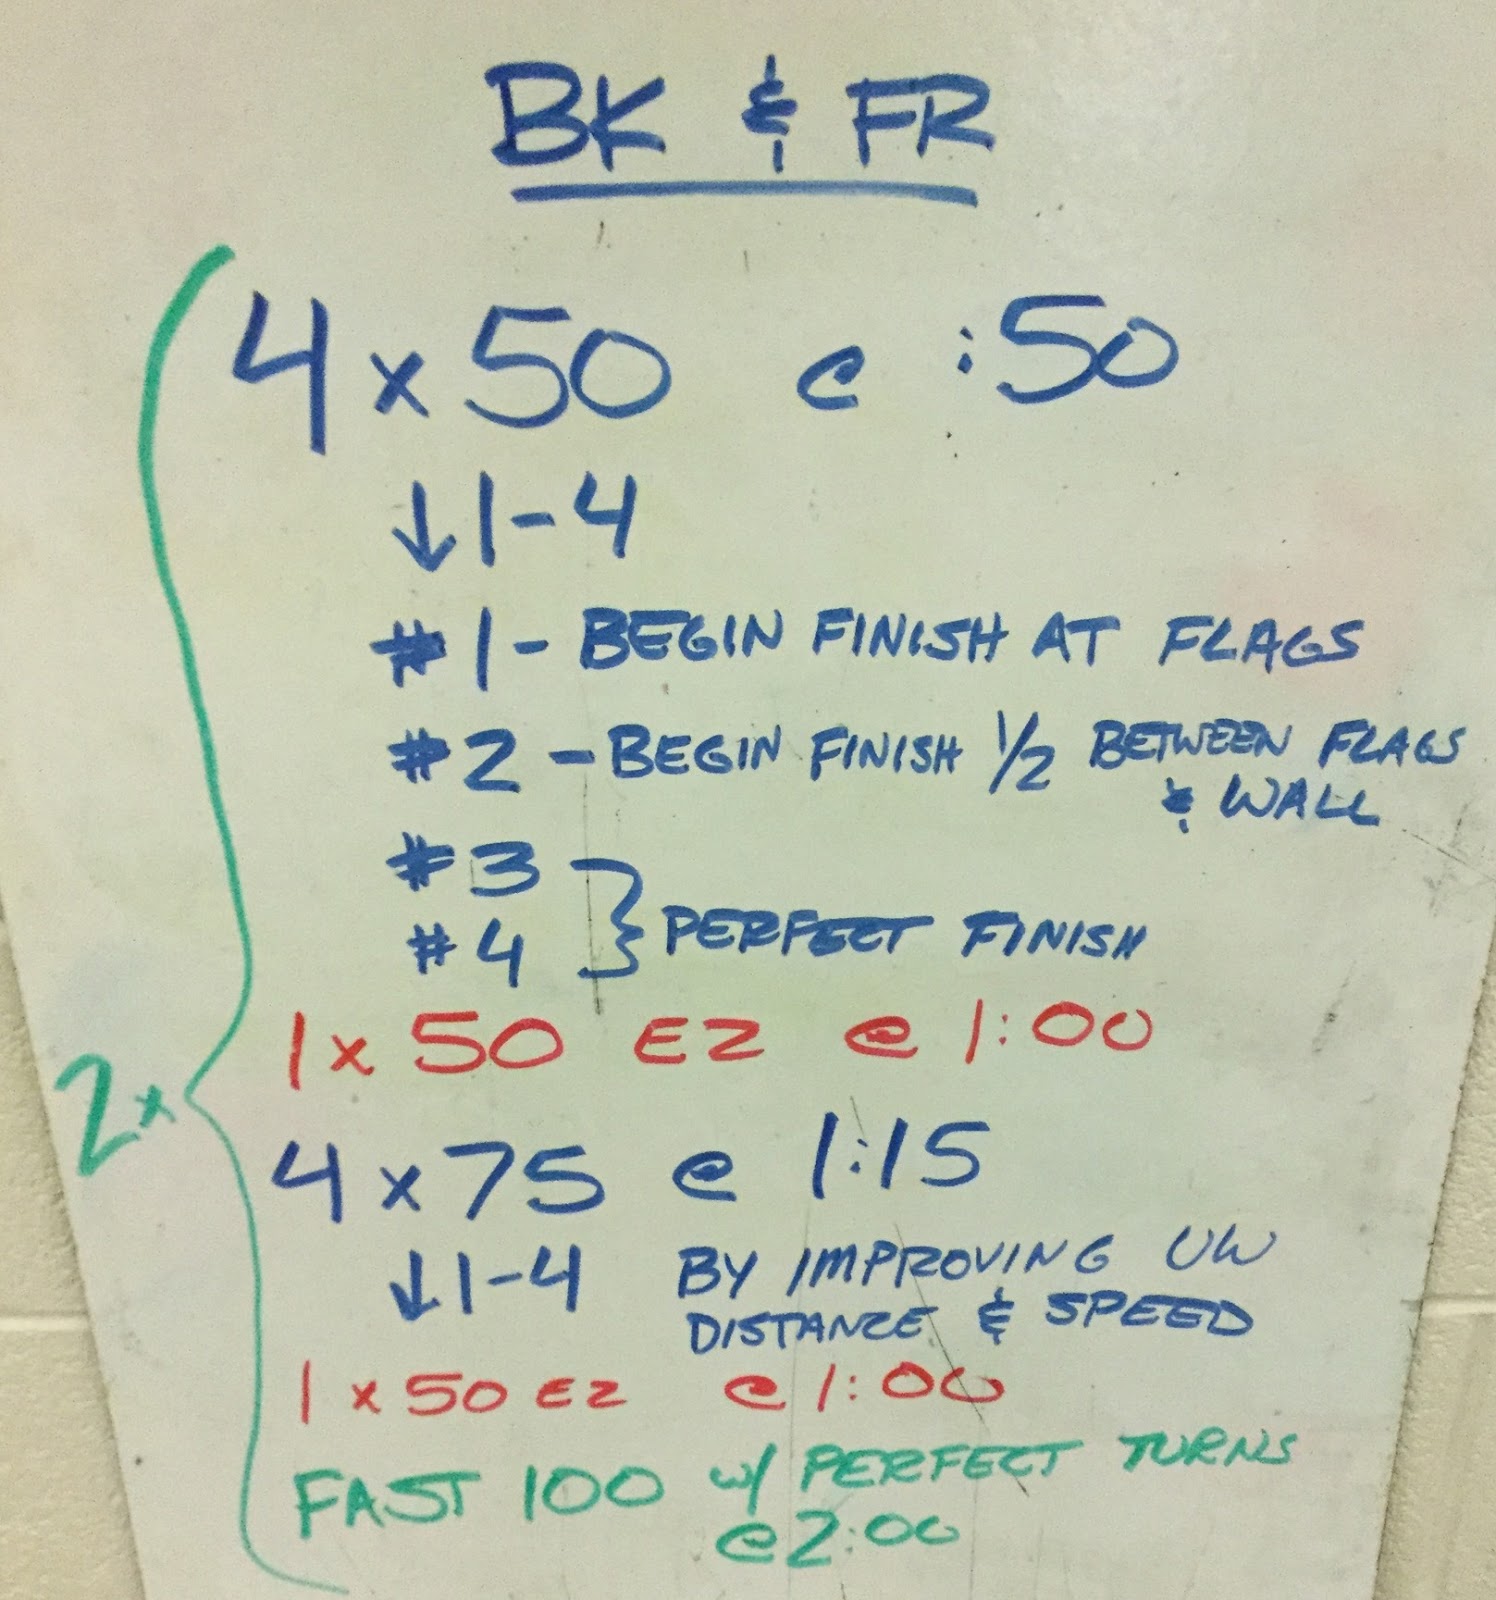 BK & FR
4 x 50 @ :50
↓1-4
#1 - BEGIN FINISH AT FLAGS
#2 - BEGIN FINISH 1/2 BETWEEN FLAGS
& WALL
#3
#4 } PERFECT FINISH
1 x 50 EZ @ 1:00
2x
4 x 75 @ 1:15
↓1-4 BY IMPROVING UW
DISTANCE & SPEED
1 x 50 EZ @ 1:00
FAST 100 w/ PERFECT TURNS
@ 2:00